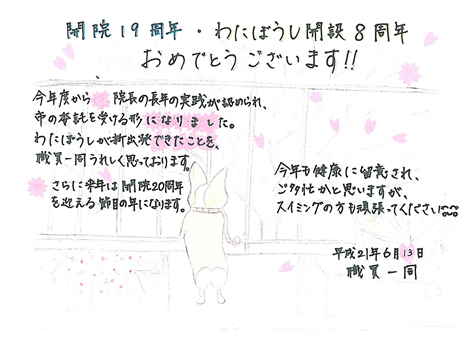 開院19周年・わにぼうし開設8周年
おめでとうございます!!
今年度から 院長の長年の実践が認められ、
市の委託を受ける形になりました。
わにぼうしが新出発できたことを、
職員一同うれしく思っております。
さらに来年は開院20周年
を迎える節目の年になります。
今年も健康に留意され、
ご多忙かと思いますが、
スイミングの方も頑張ってください
平成21年6月13日
職員一同